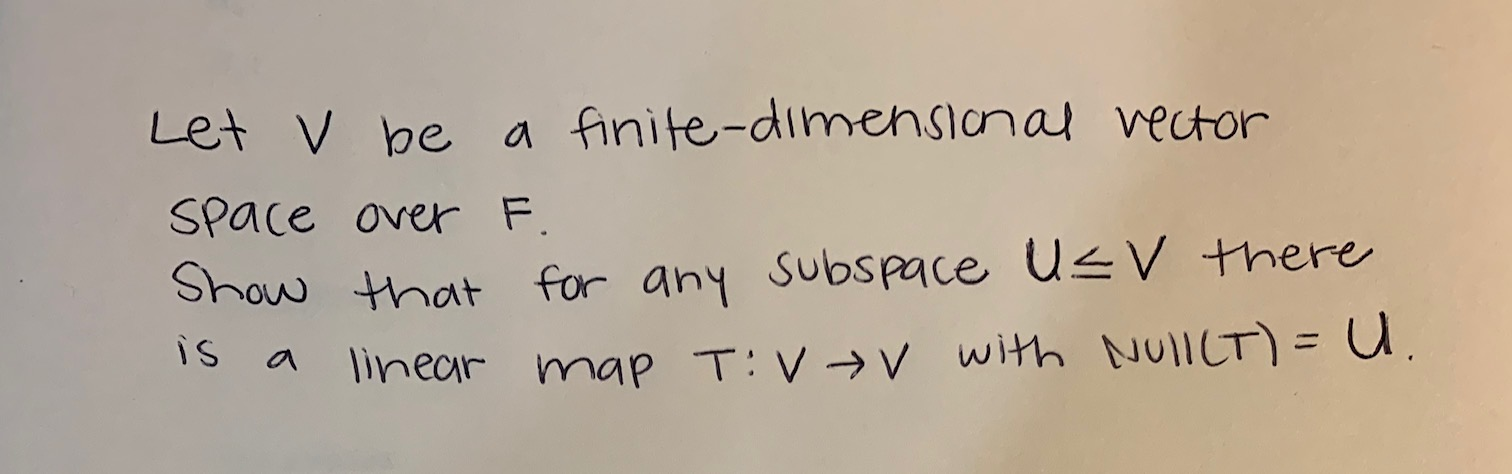 Let V be a finite-dimensional vector
space over F.
Show that for any subspace U≤V there
is a linear map T:V→V with Null(T)=U.